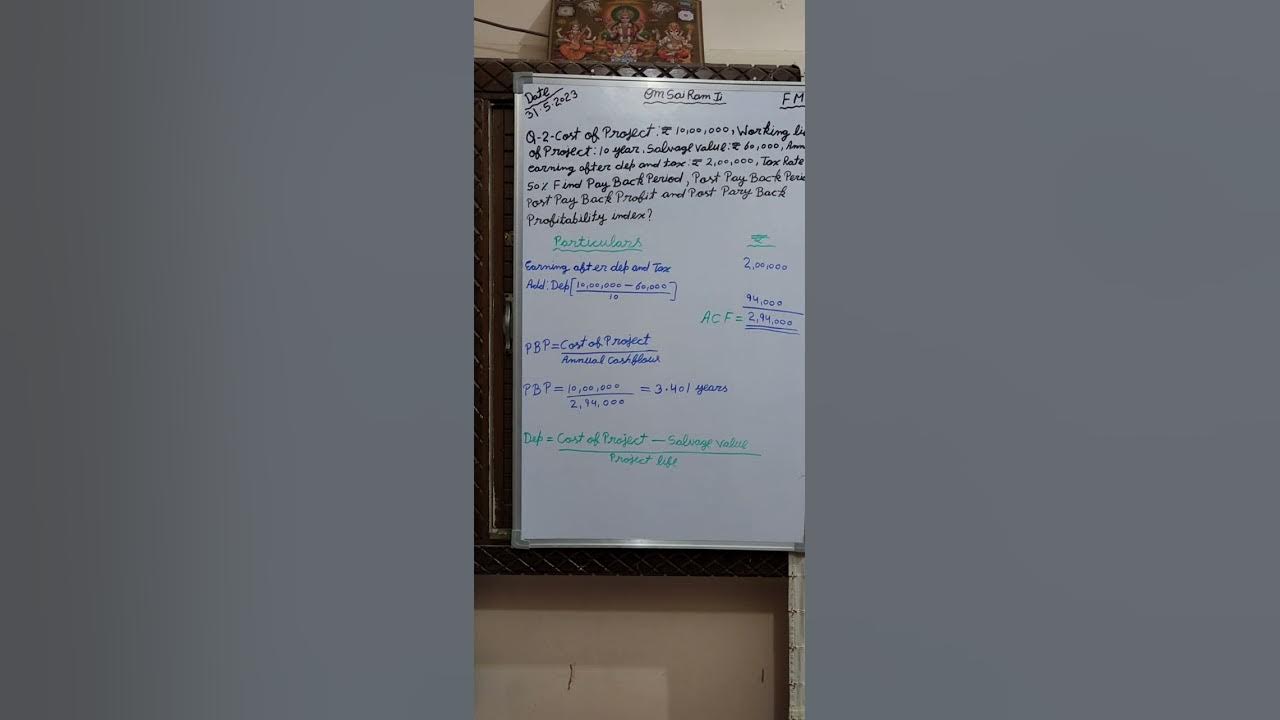 Date
31.5.2023
Om Sai Ram Ji
FM
Q-2-Cost of Project: ₹ 10,00,000, Working li
of Project: 10 year. Salvage value: ₹ 60,000, Ann
earning after dep and tax: ₹ 2,00,000, Tax Rate
50% Find Pay Back Period, Post Pay Back Perio
Post Pay Back Profit and Post Pary Back
Profitability index?
Particulars ₹
Earning after dep and Tax 2,00,000
Add: Dep [10,00,000 - 60,000 / 10] 94,000
ACF = 2,94,000
PBP = Cost of Project / Annual Cashflow
PBP = 10,00,000 / 2,94,000 = 3.401 years
Dep = Cost of Project - Salvage value / Project life